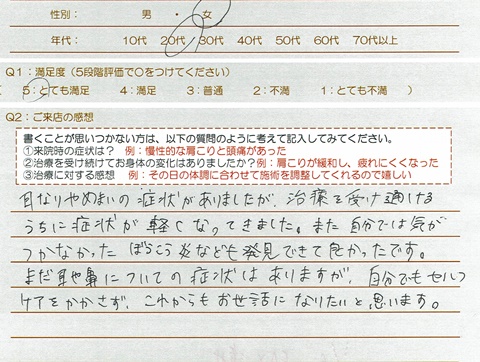 性別： 男 ・ 女
年代： 10代 20代 30代 40代 50代 60代 70代以上
Q1：満足度（5段階評価で○をつけてください）
5：とても満足 4：満足 3：普通 2：不満 1：とても不満 ）
Q2：ご来店の感想
書くことが思いつかない方は、以下の質問のように考えて記入してみてください。
①来院時の症状は？ 例：慢性的な肩こりと頭痛があった
②治療を受け続けてお身体の変化はありましたか？例：肩こりが緩和し、疲れにくくなった
③治療に対する感想 例：その日の体調に合わせて施術を調整してくれるので嬉しい
耳なりやめまいの症状がありましたが、治療を受け続ける
うちに症状が軽くなってきました。また自分では気が
つかなかったぼうこう炎なども発見できて良かったです。
まだ耳や鼻についての症状はありますが、自分でもセルフ
ケアをかかさず、これからもお世話になりたいと思います。